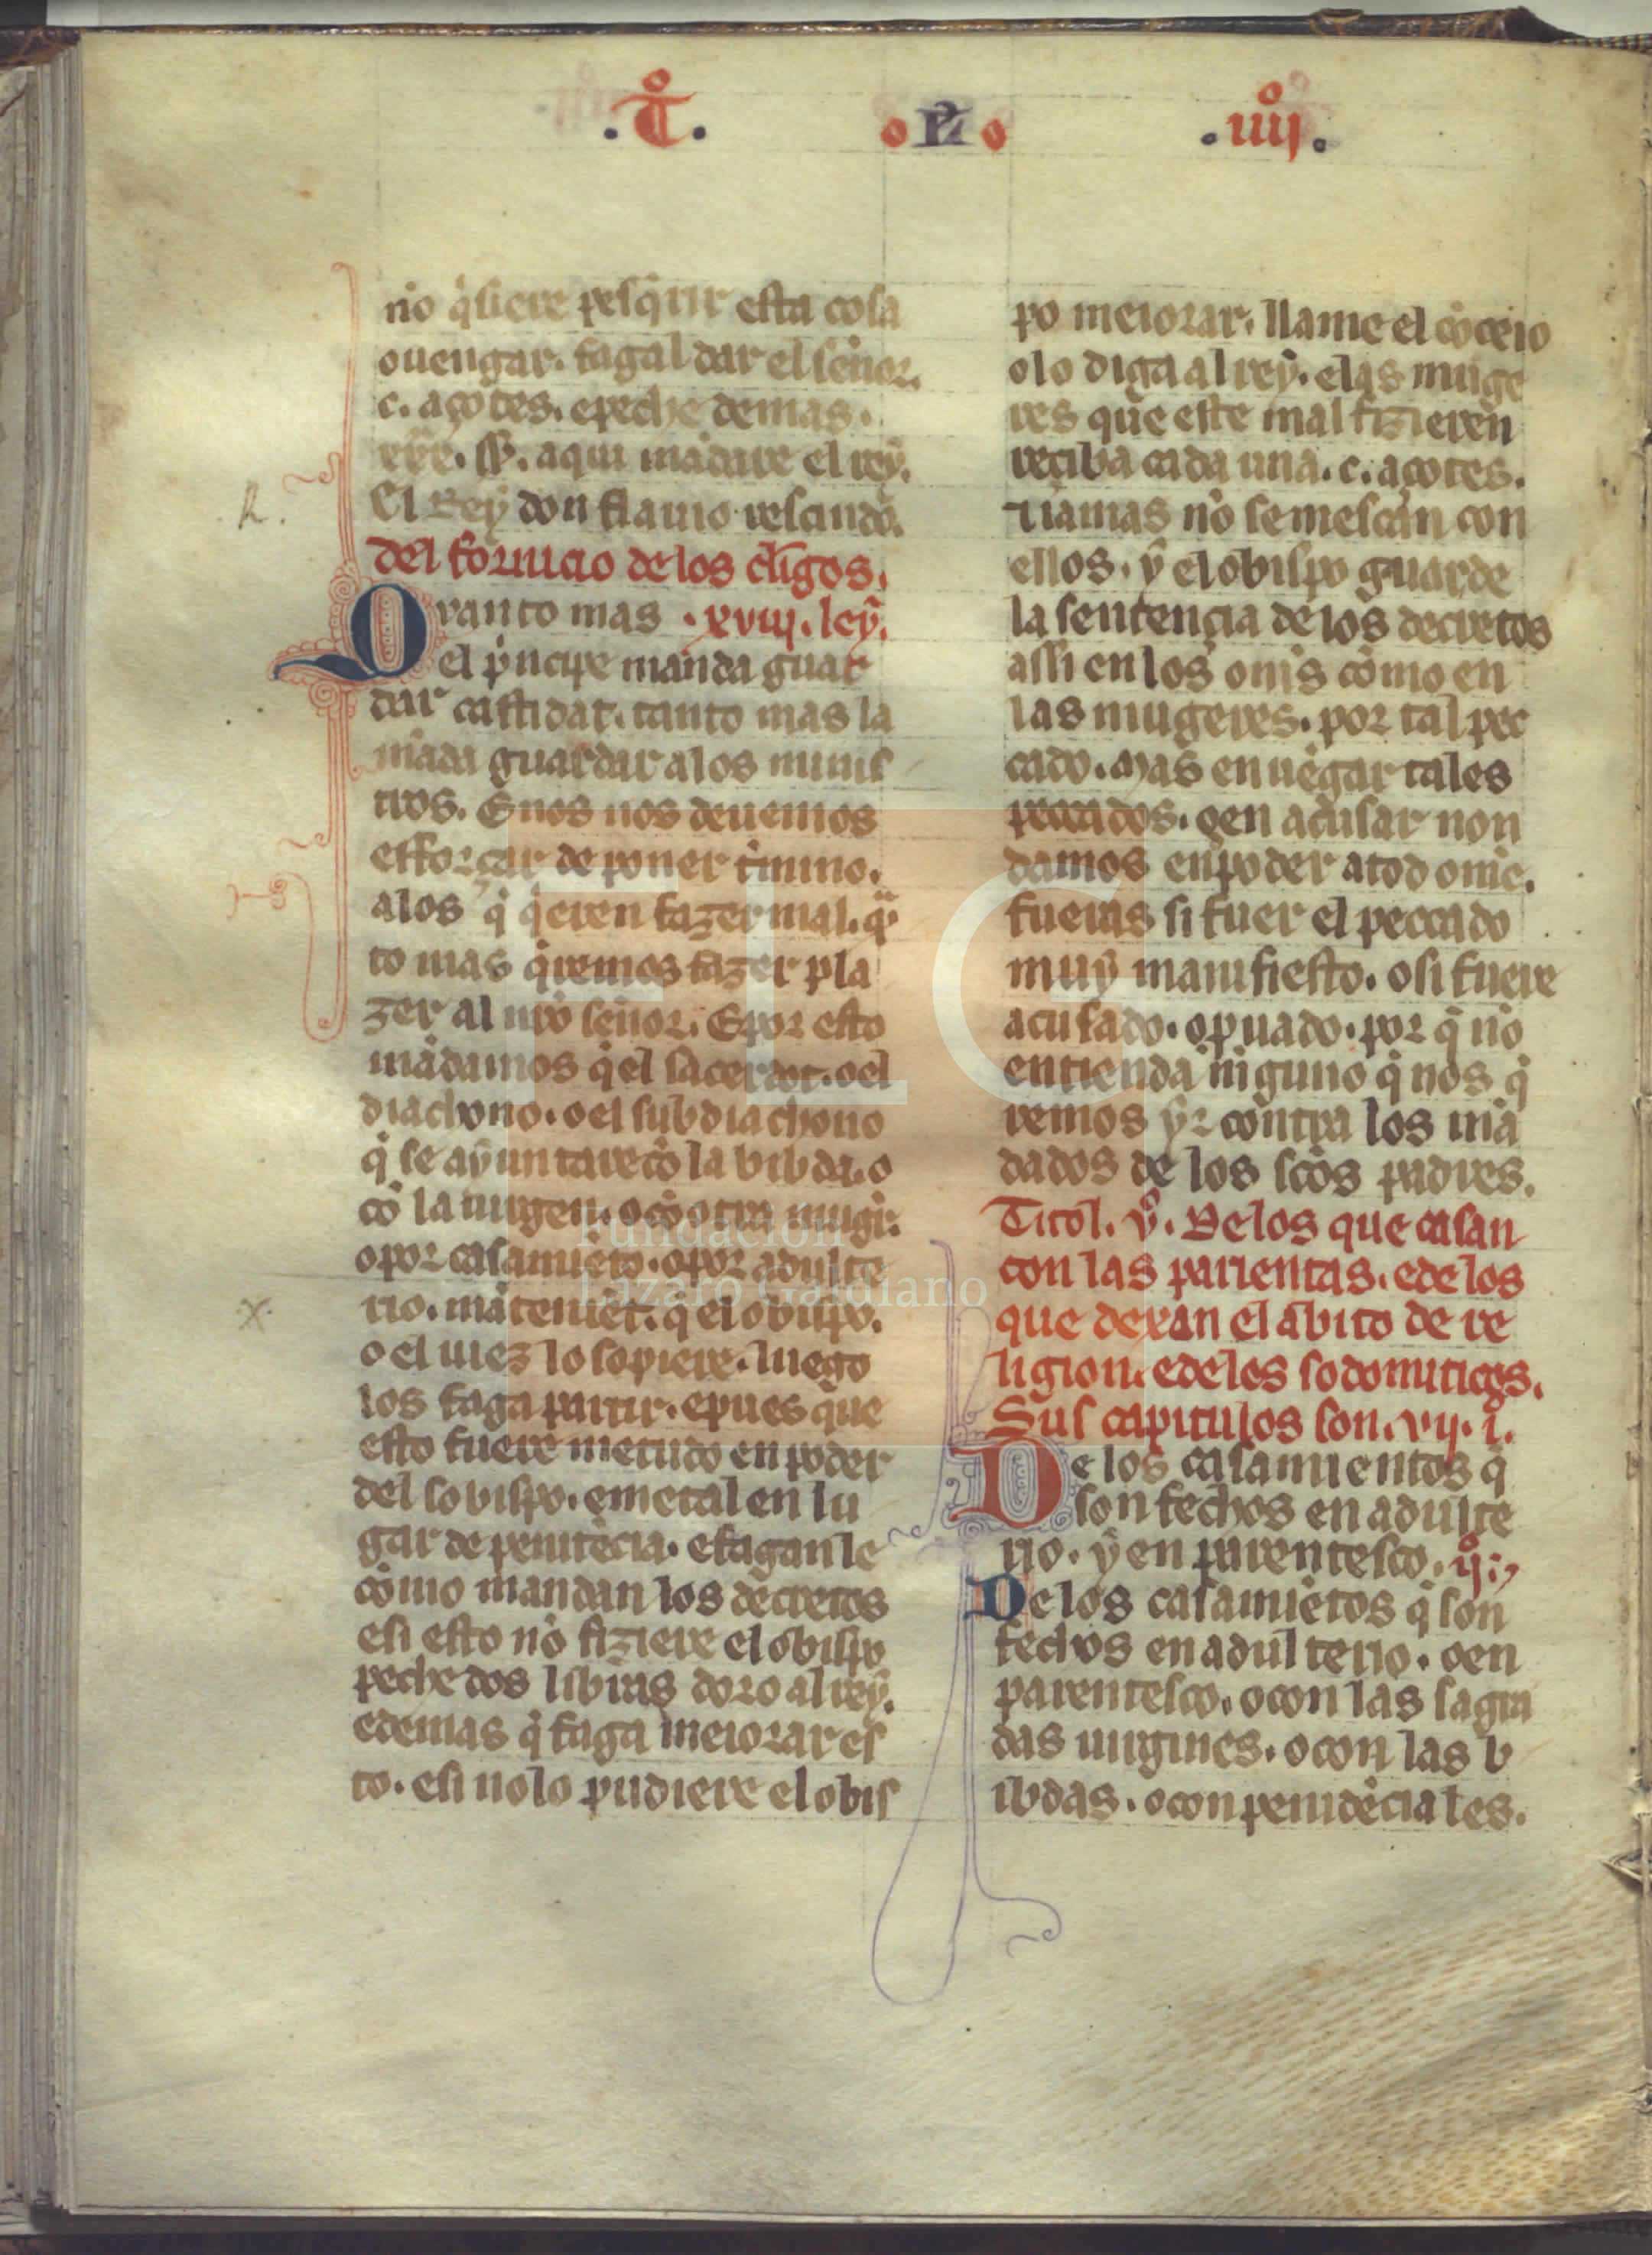 .T͛. .R. .iiij.
nõ q̃siere pesq̃rir esta cosa
ouengar. fagal dar el señor.
c. açotes. epeche demas.
ss. aqui mãdare el rey.
El Rey don flauio rescindo.
del fornicio de los cligos.
Quanto mas .xviij. ley.
el pncipe manda guar
dar castidat. tanto mas la
mãda guardar alos minis
tros. Enos nos deuemos
efforçar de poner tmino.
alos q̃ q̃eren fazer mal. qͣ
to mas q̃remos fazer pla
zer al nrõ señor. Epor esto
mãdamos q̃el sacerdot. oel
diachono. oel subdiachono
q̃ se ayuntare cõ la bibda. o
cõ la uirgen. ocõ otra mugr.
opor casamiẽto. opor adulte
rio. mãteniẽt. q̃ el obispo.
o el iuez lo sopiere. luego
los faga partir. epues que
esto fuere metudo en poder
del sobispo. emetal en lu
gar de penitẽcia. efaganle
cõmo mandan los decretos
esi esto nõ fiziere el obispo
peche dos libras doro al rey.
edemas q̃ faga meiorar es
to. esi nolo pudiere el obis
po meiorar. llame el cõceio
olo diga al rey. elas muge
res que este mal fizieren
reciba cada una. c. açotes.
Iiamas nõ se mescan con
ellos. y el obispo guarde
la sentencia de los decretos
assi en los omĩs cõmo en
las mugeres. por tal pec
cado. Mas en uẽgar tales
peccados. oen acusar non
damos enpoder atod omẽ.
fueras si fuer el peccado
muy manifiesto. osi fuere
acusado. opuado. por q̃ nõ
entienda niguno q̃ nos q̃
remos yr contra los mã
dados de los scõs padres.
Titol. v̊. De los que casan
con las parientas. edelos
que dexan el abito de re
ligion. edelos sodomiticos.
Sus capitulos son. vij. i.
De los casamientos q̃
son fechos en adulte
rio. y en parentesco. ij̊.
De los casamiẽtos q̃ son
fechos en adulterio. oen
parentesco. ocon las sagra
das uirgines. ocon las b
ibdas. ocon penidẽciales.
R.
x.
FLG
Fundación
Lázaro Galdiano